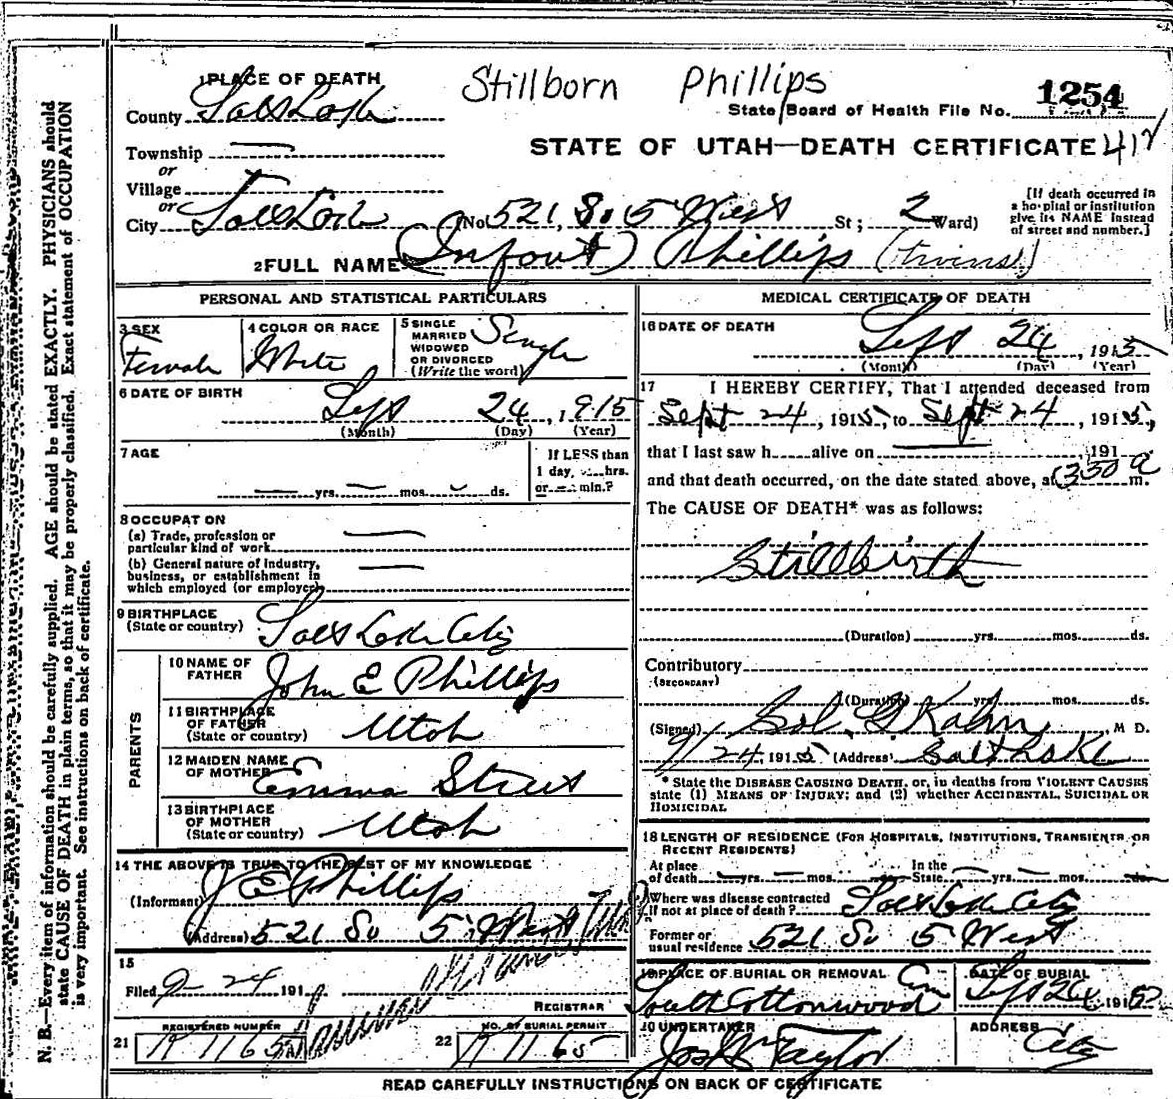 Stillborn Phillips
1 PLACE OF DEATH
County Salt Lake
State Board of Health File No. 1254
Township —
or
Village
or
City Salt Lake
STATE OF UTAH—DEATH CERTIFICATE 412
No. 521 So 5 West St; 2 Ward)
[If death occurred in a hospital or institution give its NAME instead of street and number.]
2 FULL NAME (Infant) Phillips (twins)
PERSONAL AND STATISTICAL PARTICULARS
3 SEX
Female
4 COLOR OR RACE
White
5 SINGLE MARRIED WIDOWED OR DIVORCED (Write the word)
Single
6 DATE OF BIRTH
Sept 24, 1915
(Month) (Day) (Year)
7 AGE
— yrs. — mos. — ds.
If LESS than 1 day, ....hrs. or ....min.?
8 OCCUPATION
(a) Trade, profession or particular kind of work —
(b) General nature of industry, business, or establishment in which employed (or employer) —
9 BIRTHPLACE
(State or country) Salt Lake City
PARENTS
10 NAME OF FATHER John E Phillips
11 BIRTHPLACE OF FATHER (State or country) Utah
12 MAIDEN NAME OF MOTHER Emma Street
13 BIRTHPLACE OF MOTHER (State or country) Utah
14 THE ABOVE IS TRUE TO THE BEST OF MY KNOWLEDGE
(Informant) J E Phillips
(Address) 521 So 5 West
15
Filed 9-24 191
REGISTRAR
REGISTERED NUMBER
21
NO. OF BURIAL PERMIT
22 1165
MEDICAL CERTIFICATE OF DEATH
16 DATE OF DEATH
Sept 24, 1915
(Month) (Day) (Year)
17 I HEREBY CERTIFY, That I attended deceased from
Sept 24, 1915, to Sept 24, 1915,
that I last saw h.....alive on — , 191
and that death occurred, on the date stated above, at 3 30 a m.
The CAUSE OF DEATH* was as follows:
Stillbirth
(Duration) yrs. mos. ds.
Contributory
(SECONDARY)
(Duration) yrs. mos. ds.
(Signed) Sol. G Kahn, M D.
9/24, 1915 (Address) Salt Lake
* State the DISEASE CAUSING DEATH, or, in deaths from VIOLENT CAUSES
state (1) MEANS OF INJURY; and (2) whether ACCIDENTAL, SUICIDAL OR
HOMICIDAL
18 LENGTH OF RESIDENCE (FOR HOSPITALS, INSTITUTIONS, TRANSIENTS OR
RECENT RESIDENTS)
At place of death — yrs. — mos. — ds. In the State — yrs. — mos. — ds.
Where was disease contracted
If not at place of death? Salt Lake City
Former or usual residence 521 So 5 West
19 PLACE OF BURIAL OR REMOVAL
South Cottonwood Cem
DATE OF BURIAL
Sept 24 1915
20 UNDERTAKER
Jos Wm Taylor
ADDRESS
City
READ CAREFULLY INSTRUCTIONS ON BACK OF CERTIFICATE
N. B.—Every item of information should be carefully supplied. AGE should be stated EXACTLY. PHYSICIANS should
state CAUSE OF DEATH in plain terms, so that it may be properly classified. Exact statement of OCCUPATION
is very important. See instructions on back of certificate.